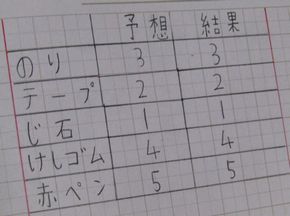 予想 結果
のり 3 3
テープ 2 2
じ石 1 1
けしゴム 4 4
赤ペン 5 5